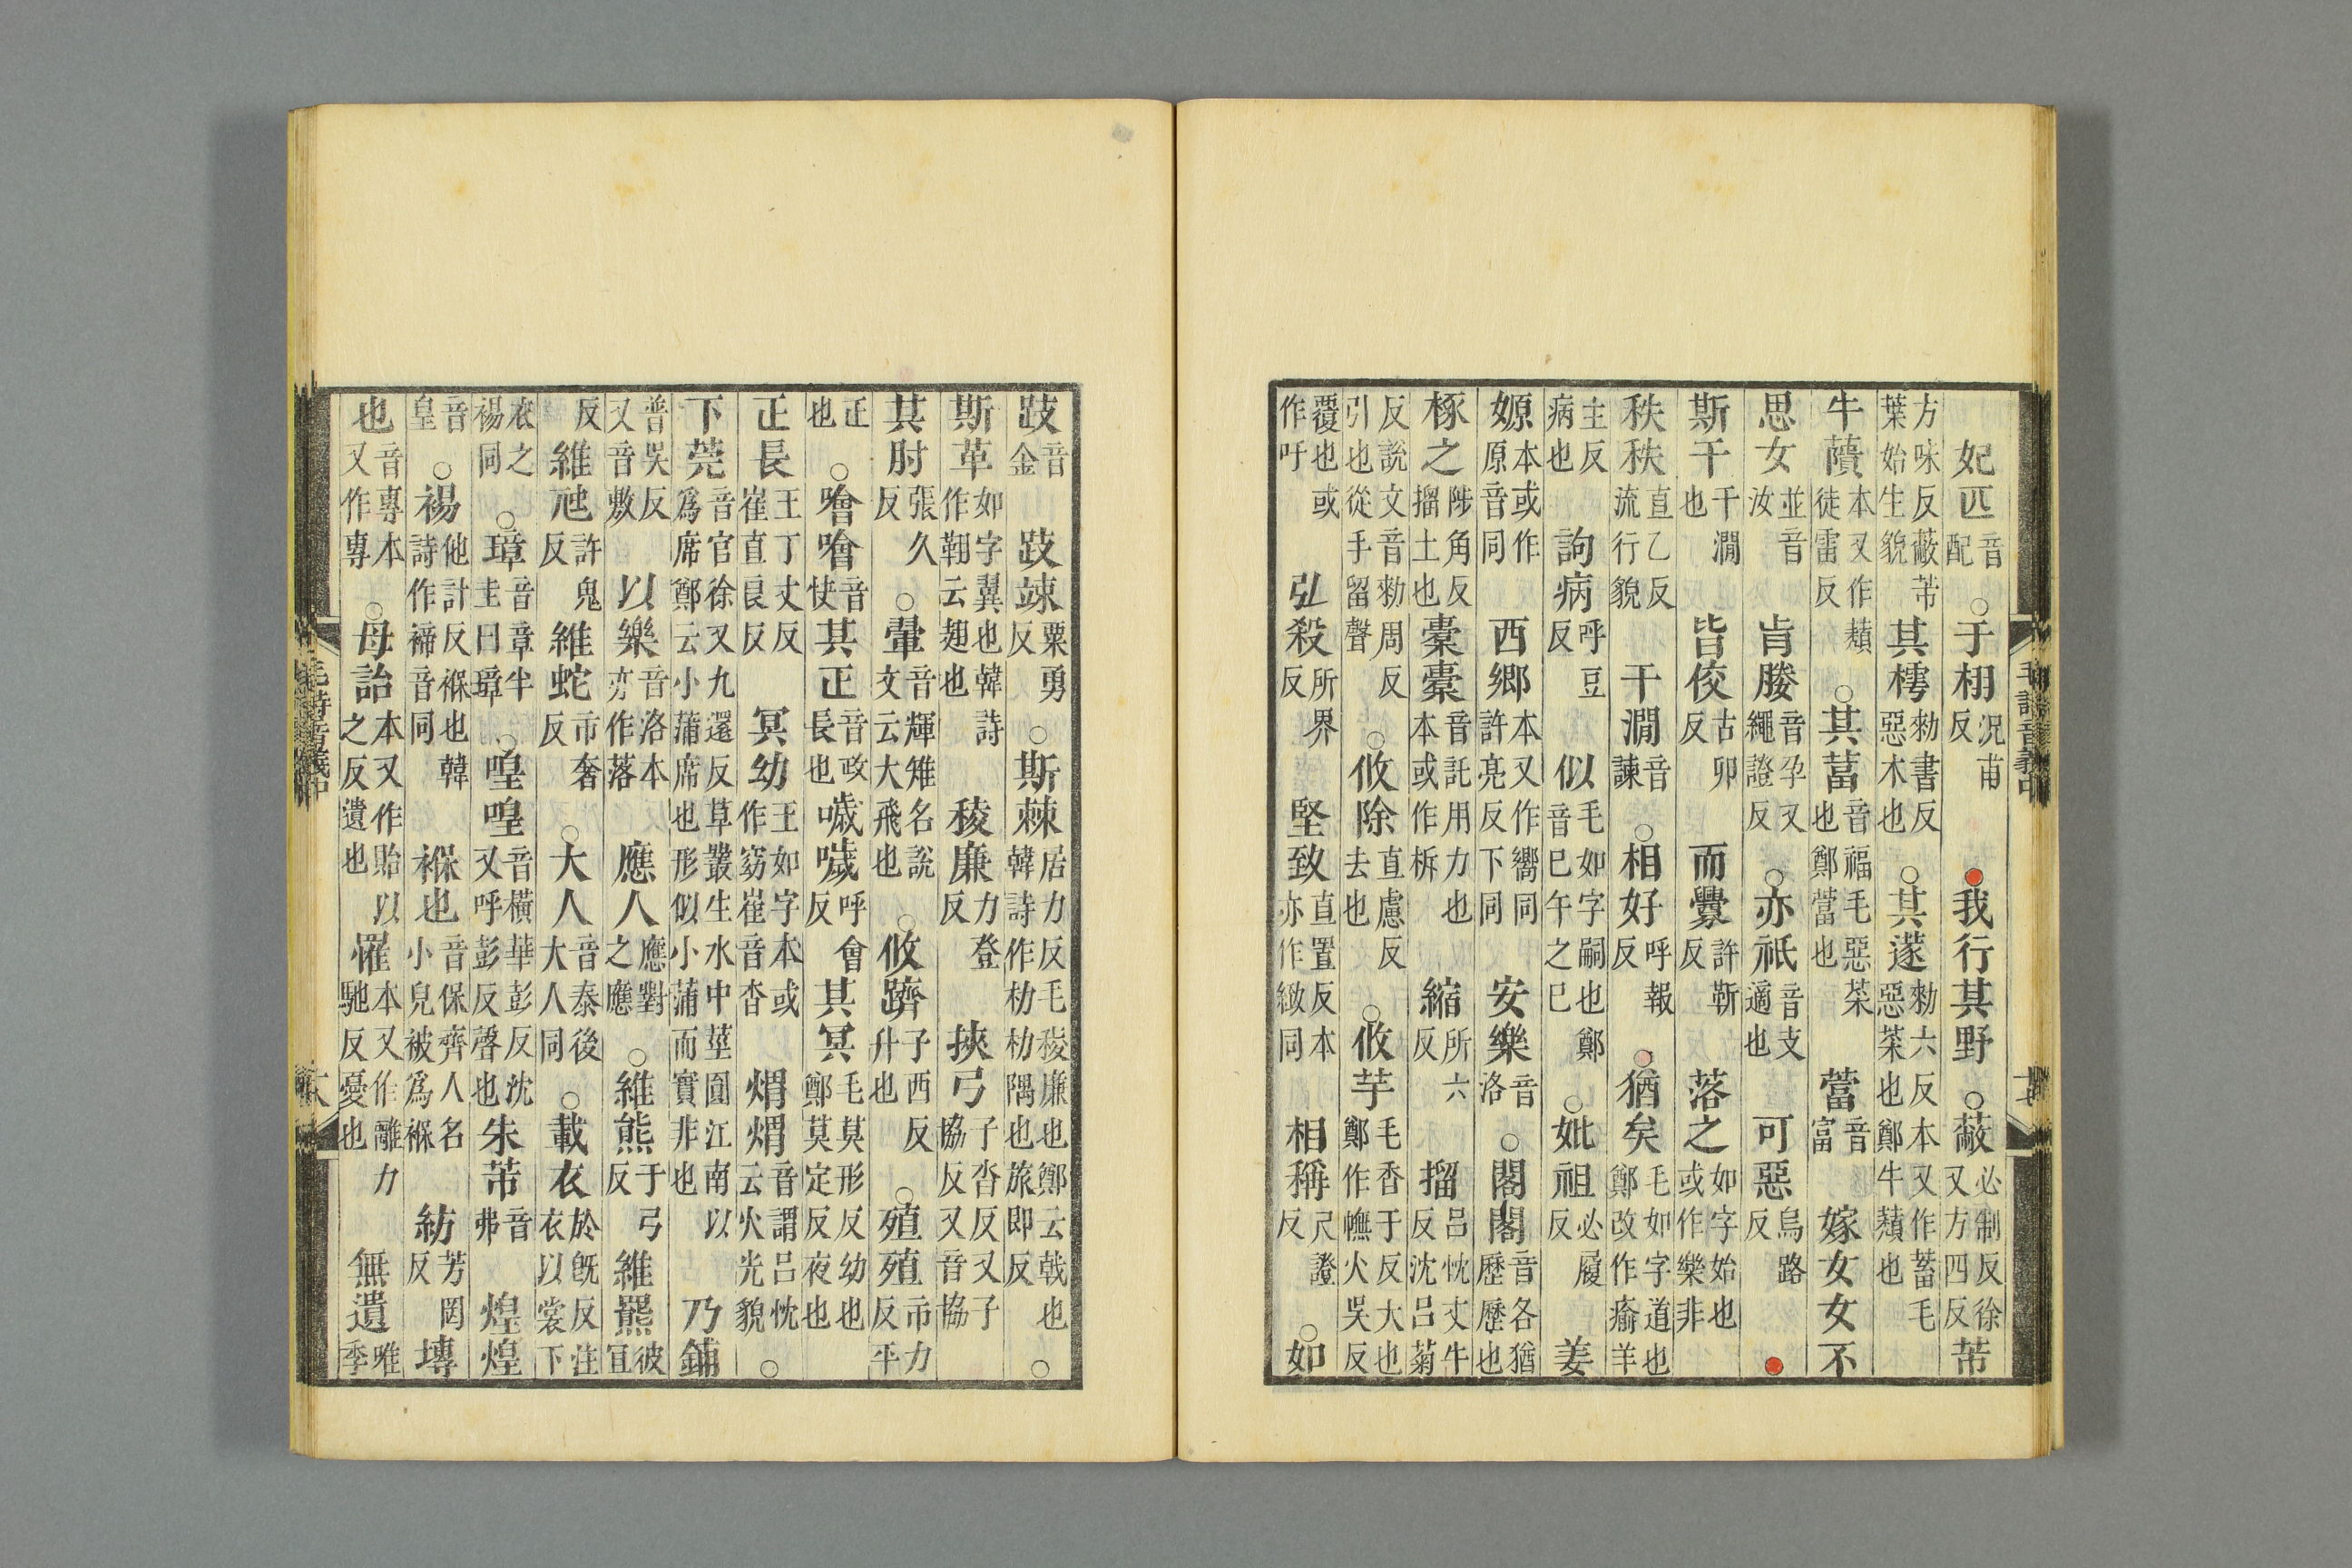 妃匹音配○于栩况甫反●我行其野○蔽必制反徐又方四反芾
方味反蔽芾葉始生貌其樗勑書反惡木也○其蓫勑六反本又作蓄毛惡菜也鄭牛蘈也
牛藬本又作蘈徒雷反○其葍音福毛惡菜也鄭䔰也䔰音富嫁女女不
思女並音汝肯媵音孕又繩證反○亦祇音支適也可惡烏路反●
斯干干澗也皆佼古卯反而釁許靳反落之如字始也或作樂非
秩秩直乙反流行貌干澗音諫○相好呼報反猶矣毛如字道也鄭改作瘉羊
主反病也訽病呼豆反似毛如字嗣也鄭音巳午之巳○妣祖必履反姜
嫄本或作原音同西鄉本又作嚮同許亮反下同安樂音洛○閣閣音各猶歷歷也
椓之陟角反㨨土也橐橐音託用力也本或作柝縮所六反㨨呂忱丈牛反沈呂菊
反說文音勑周反引也從手留聲○攸除直慮反去也○攸芋毛香于反大也鄭作幠火吳反
覆也或作吁弘殺所界反堅致直置反本亦作緻同相稱尺證反○如
毛詩音義中
跂音金跂竦粟勇反○斯棘居力反毛稜廉也鄭云戟也韓詩作朸朸隅也旅即反○
斯革如字翼也韓詩作䩗云翅也稜廉力登反挾弓子沓反又子協反又音協
其肘張久反○翬音輝雉名說文云大飛也○攸躋子西反升也○殖殖市力反平
正也○噲噲音快其正音政長也噦噦呼會反其冥毛莫形反幼也鄭莫定反夜也
正長王丁丈反崔直良反冥幼王如字本或作窈崔音杳煟煟音謂呂忱云火光貌○
下莞音官徐又九還反草叢生水中莖圓江南以爲席鄭云小蒲席也形似小蒲而實非也乃鋪
普吳反又音敷以樂音洛本亦作落應人應對之應○維熊于弓反維羆彼宜
反維虺許鬼反維蛇市奢反○大人音泰後大人同○載衣於既反注衣以裳下
衣之裼同○璋音章半圭曰璋○喤喤音橫華彭反沈又呼彭反聲也朱芾音弗煌煌
音皇○裼他計反褓也韓詩作禘音同褓也音保齊人名小兒被爲褓紡芳罔反塼
也音專本又作專○母詒本又作貽以之反遺也罹本又作離力馳反憂也無遺唯季
毛詩音義中